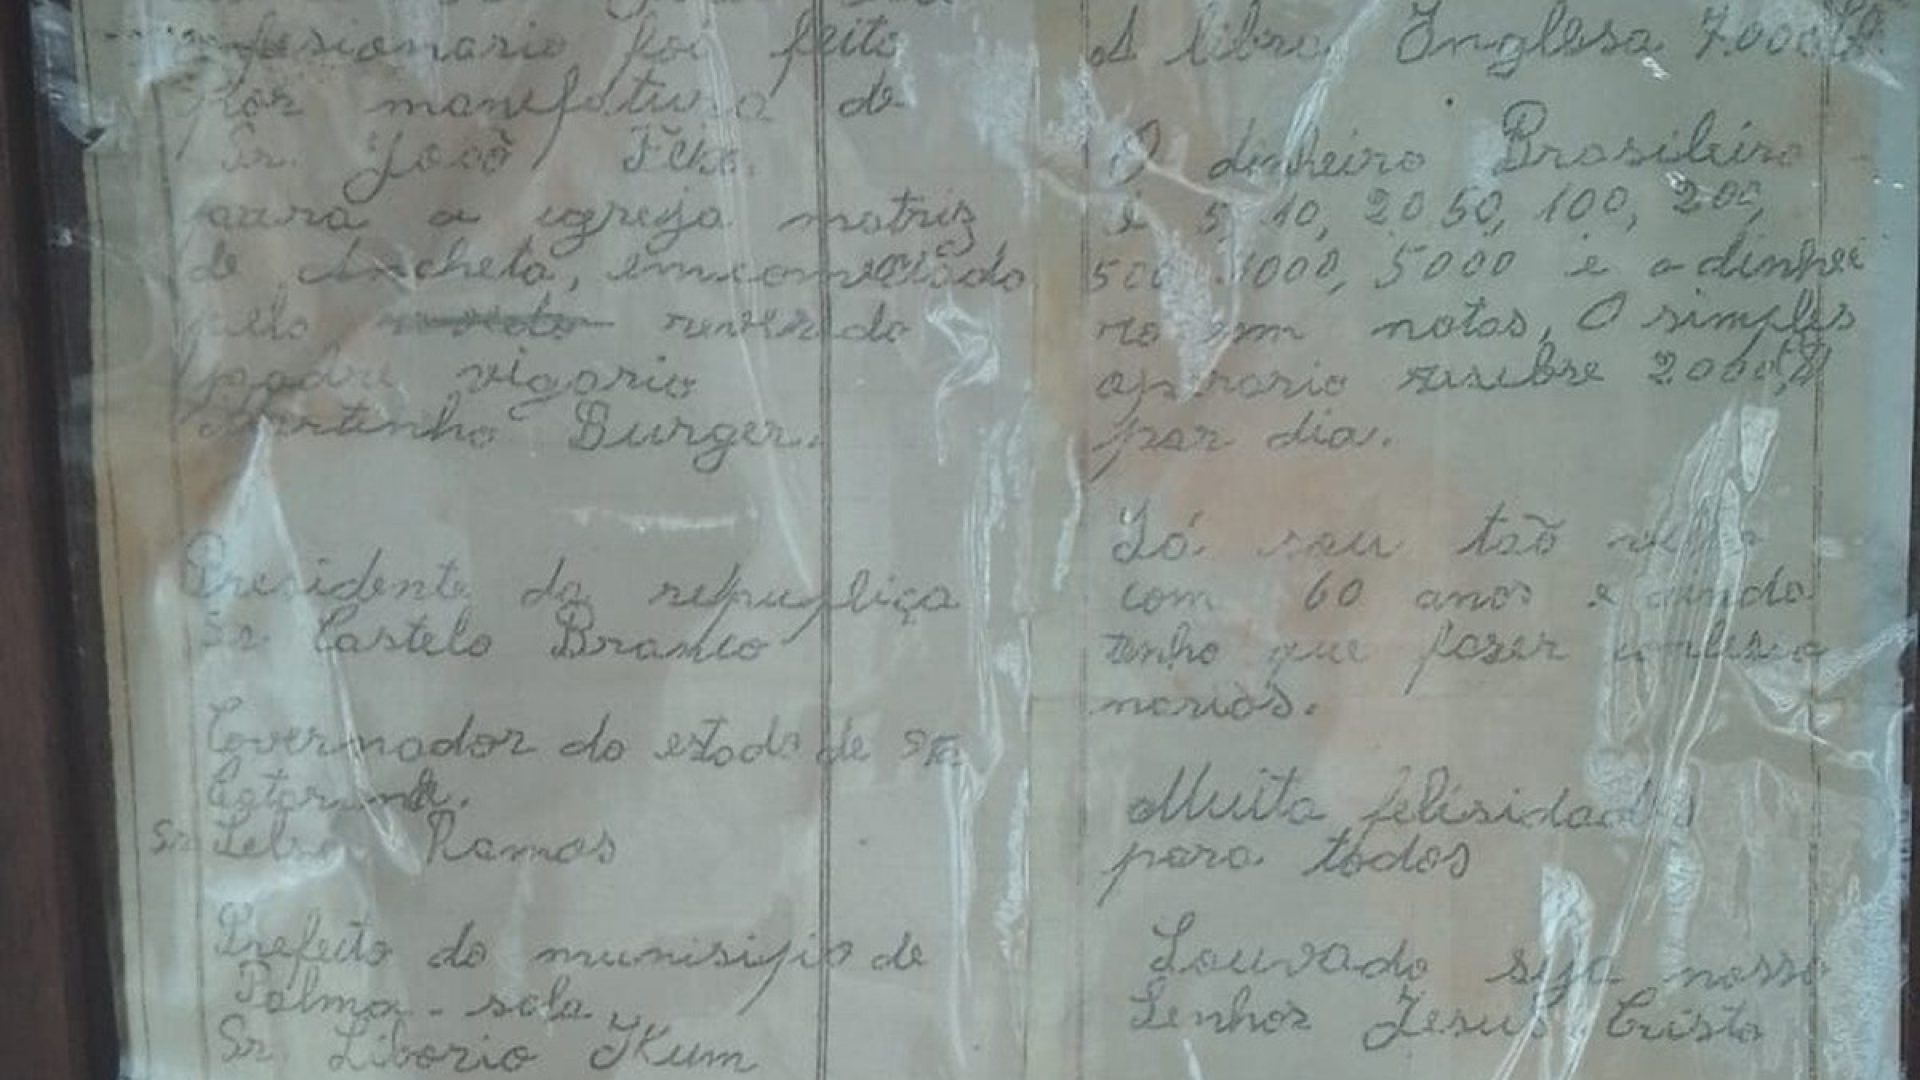 fesionario foi feito
Por manefatura de
Sr. João
para a igreja matriz
de Ancheta, emcomendado
pelo reverendo
padre vigario
Martinho Burger.
Presidente da repupliça
Sr. Castelo Branco
Governador do estado de Sta
Catarina.
Sr Ramos
Prefeito do munisipio de
Palma-sola
Sr. Liborio
A libra Inglesa
O dinheiro Brasileiro
é 5, 10, 20 50, 100, 200,
500 1000, 5000 e o dinhei
ro em notas, O simples
operario resebre 2000
por dia.
Já sou tão
com 60 anos e ainda
tenho que faser confesio
narios.
Muita felisidades
para todos
Louvado seja nosso
Senhor Jesus Cristo